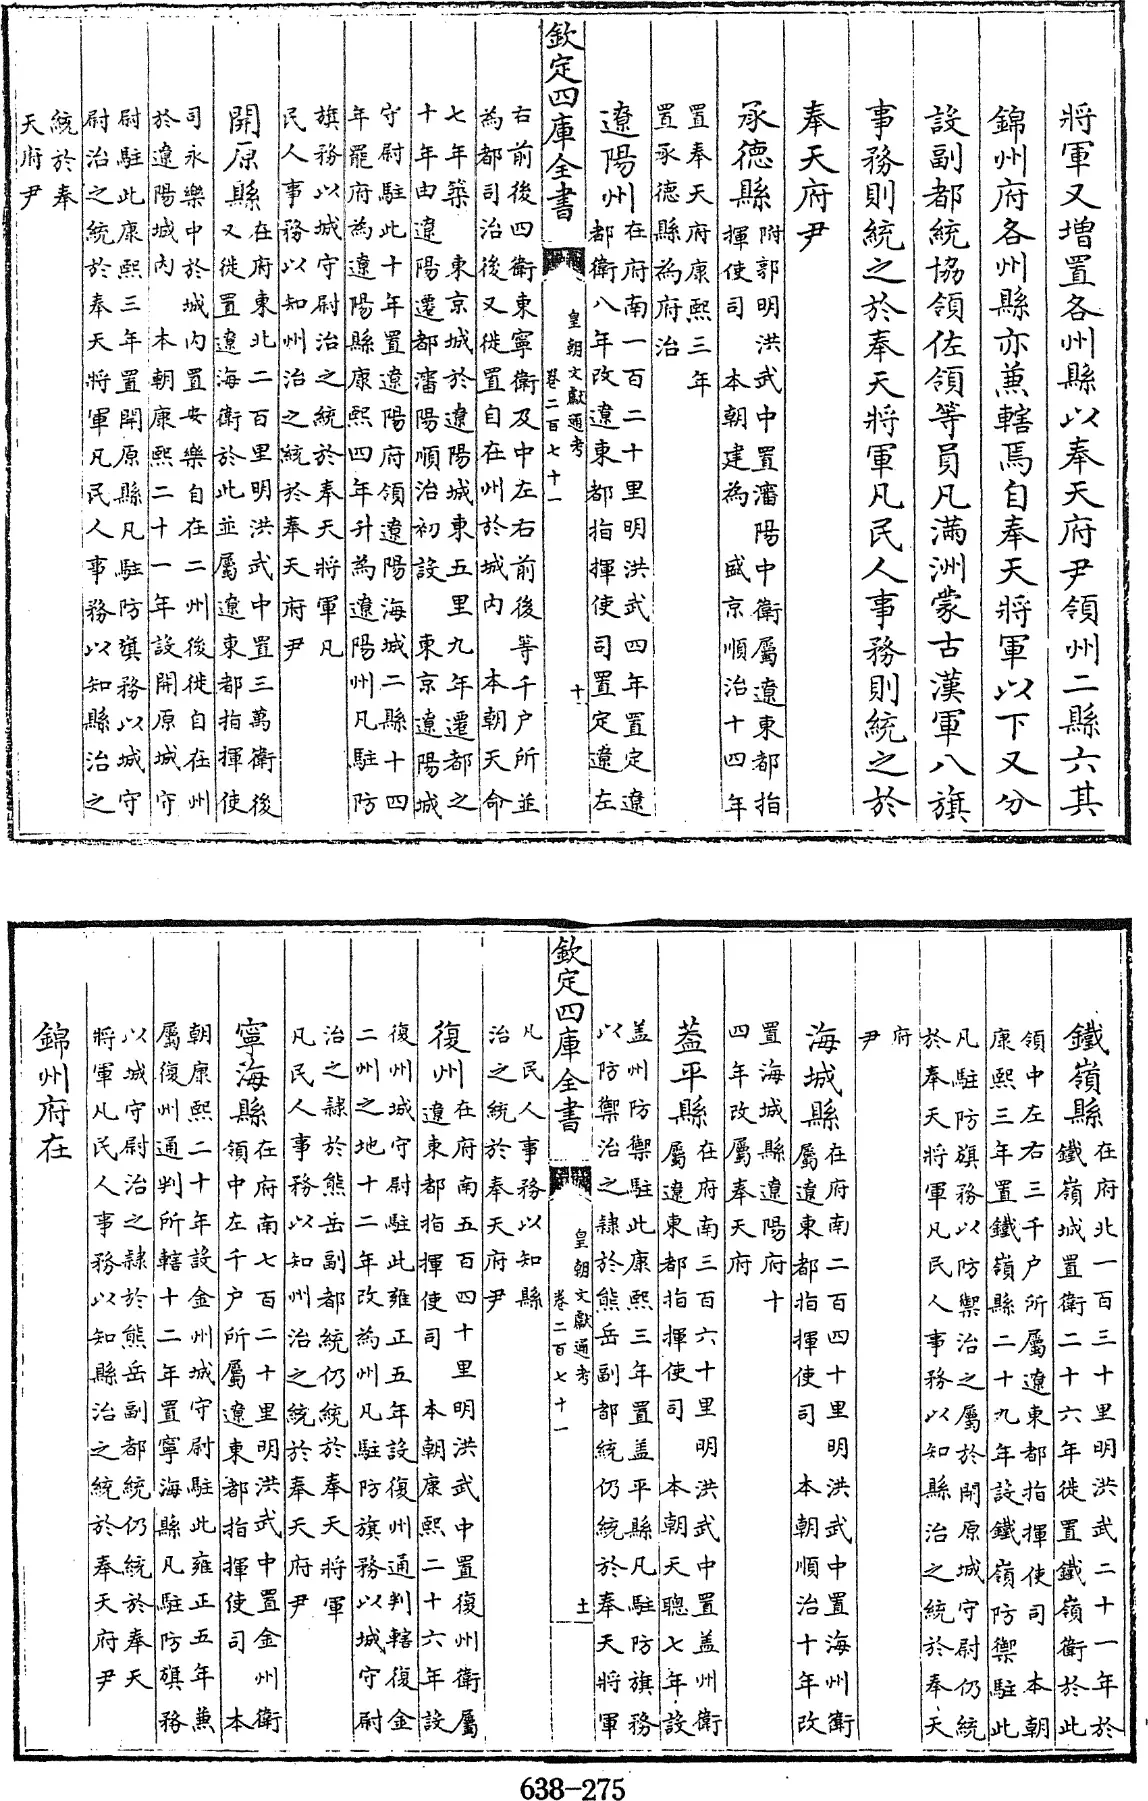 將軍又增置各州縣以奉天府尹領州二縣六其
錦州府各州縣亦兼轄焉自奉天將軍以下又分
設副都統協領佐領等員凡滿洲蒙古漢軍八旗
事務則統之於奉天將軍凡民人事務則統之於
奉天府尹
承德縣 附郭明洪武中置瀋陽中衛屬遼東都指
揮使司 本朝建為 盛京順治十四年
置奉天府康熙三年
置承德縣為府治
遼陽州 在府南一百二十里明洪武四年置定遼
都衛八年改遼東都指揮使司置定遼左
欽定四庫全書
皇朝文獻通考
卷二百七十一
十
右前後四衛東寧衛及中左右前後等千户所並
為都司治後又徙置自在州於城内 本朝天命
七年築 東京城於遼陽城東五里九年遷都之
十年由遼陽遷都瀋陽順治初設 東京遼陽城
守尉駐此十年置遼陽府領遼陽海城二縣十四
年罷府為遼陽縣康熙四年升為遼陽州凡駐防
旗務以城守尉治之統於奉天將軍凡
民人事務以知州治之統於奉天府尹
開原縣 在府東北二百里明洪武中置三萬衛後
又徙置遼海衛於此並屬遼東都指揮使
司永樂中於城内置安樂自在二州後徙自在州
於遼陽城内 本朝康熙二十一年設開原城守
尉駐此康熙三年置開原縣凡駐防旗務以城守
尉治之統於奉天將軍凡民人事務以知縣治之
統於奉
天府尹
鐵嶺縣 在府北一百三十里明洪武二十一年於
鐵嶺城置衛二十六年徙置鐵嶺衛於此
領中左右三千户所屬遼東都指揮使司 本朝
康熙三年置鐵嶺縣二十九年設鐵嶺防禦駐此
凡駐防旗務以防禦治之屬於開原城守尉仍統
於奉天將軍凡民人事務以知縣治之統於奉天
府
尹
海城縣 在府南二百四十里明洪武中置海州衛
屬遼東都指揮使司 本朝順治十年改
置海城縣遼陽府十
四年改屬奉天府
蓋平縣 在府南三百六十里明洪武中置盖州衛
屬遼東都指揮使司 本朝天聰七年設
盖州防禦駐此康熙三年置盖平縣凡駐防旗務
以防禦治之隸於熊岳副都統仍統於奉天將軍
欽定四庫全書
皇朝文獻通考
卷二百七十一
十一
凡民人事務以知縣
治之統於奉天府尹
復州 在府南五百四十里明洪武中置復州衛屬
遼東都指揮使司 本朝康熙二十六年設
復州城守尉駐此雍正五年設復州通判轄復金
二州之地十二年改為州凡駐防旗務以城守尉
治之隸於熊岳副都統仍統於奉天將軍
凡民人事務以知州治之統於奉天府尹
寧海縣 在府南七百二十里明洪武中置金州衛
領中左千户所屬遼東都指揮使司 本
朝康熙二十年設金州城守尉駐此雍正五年兼
屬復州通判所轄十二年置寧海縣凡駐防旗務
以城守尉治之隸於熊岳副都統仍統於奉天
將軍凡民人事務以知縣治之統於奉天府尹
錦州府在
638-275